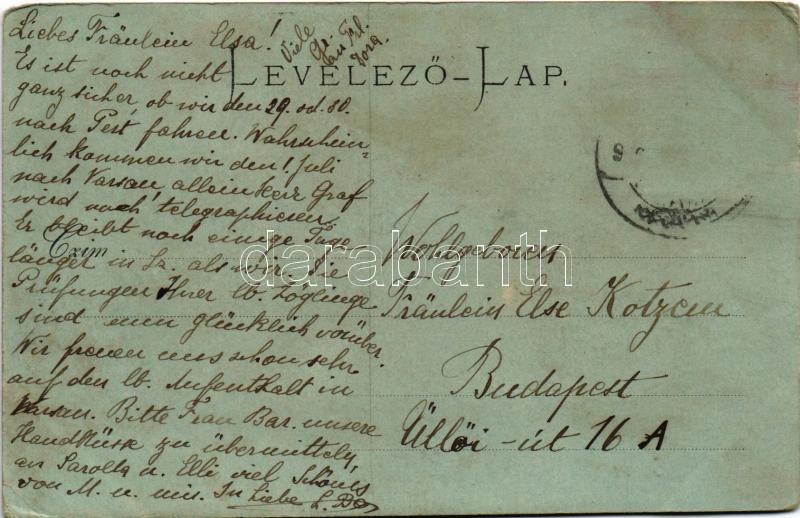 Liebes Fräulein Elsa!
Viele
Gr.
an Frl.
Es ist noch nicht
LEVELEZŐ-LAP.
ganz sicher, ob wir den 29. od. 30.
nach Pest fahren. Wahrschein-
lich kommen wir den 1. Juli
nach Varsau, allein Herr Graf
wird noch telegraphieren.
Er bleibt noch einige Tage
Czim
länger in Sz. als wir. Die
Prüfungen Ihrer lb. Zöglinge
sind nun glücklich vorüber.
Wir freuen uns schon sehr
auf den lb. Aufenthalt in
Varsau. Bitte Frau Bar. unsere
Handküsse zu übermitteln,
an Sarolta u. Elli viel Schönes
von M. u. mir. In Liebe L.
Wohlgeboren
Fräulein Else Kotzem
Budapest
Üllői-út 16 A
darabanth